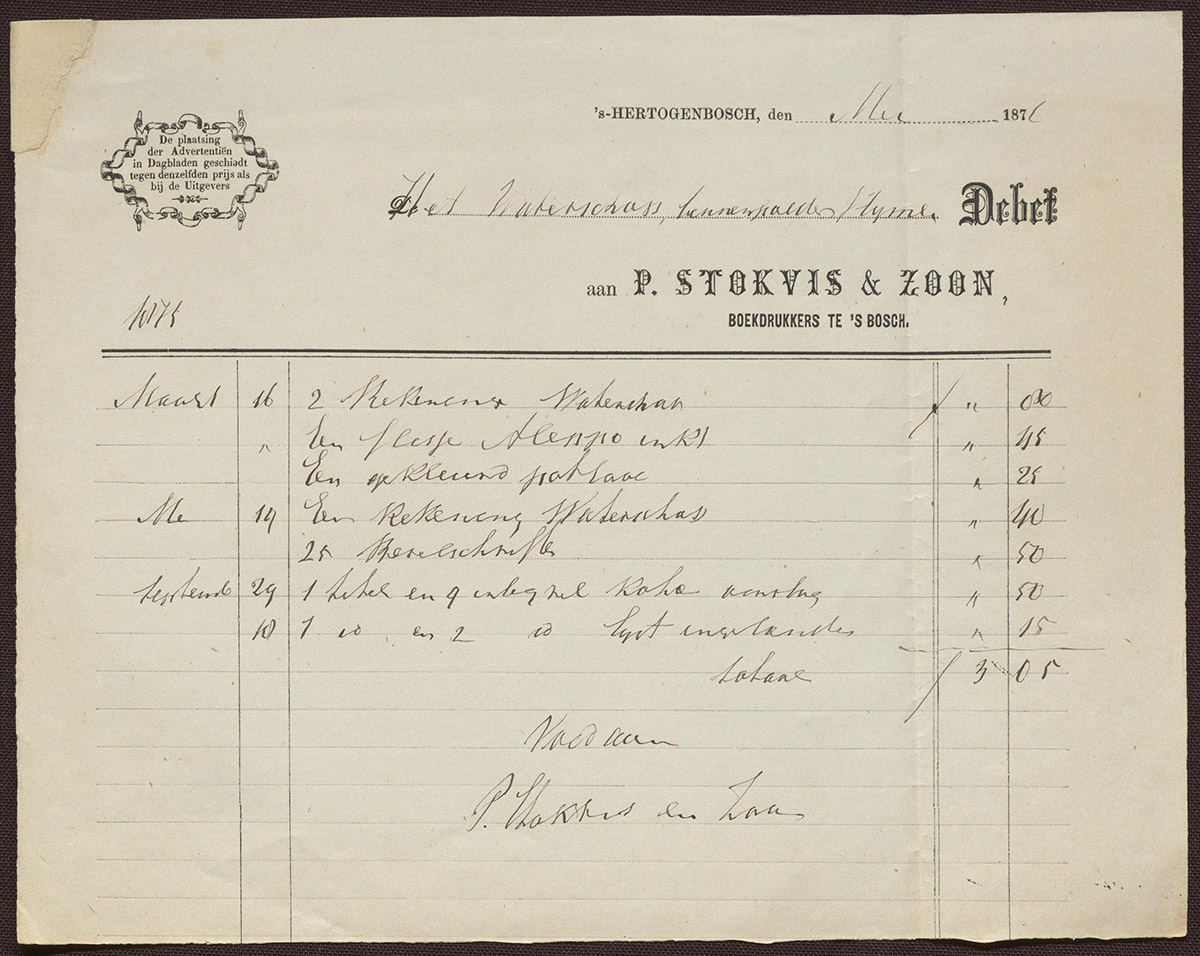 's-HERTOGENBOSCH, den Mei 1876
De plaatsing
der Advertentiën
in Dagbladen geschiedt
tegen denzelfden prijs als
bij de Uitgevers
Het Waterschap, binnenpolder Debet
aan P. STOKVIS & ZOON,
BOEKDRUKKERS TE 'S BOSCH.
1875
Maart 16 2 Rekening Waterschap ƒ " 80
" Een flesje Aleppo inkt " 45
Een gekleurd potlood " 25
Mei 19 Een Rekening Waterschap " 40
25 " 50
29 1 titel en 9 Kohr " 50
18 1 id en 2 id Lyst ingelanden " 15
totaal ƒ 3 05
Voldaan
P. Stokvis en Zoon